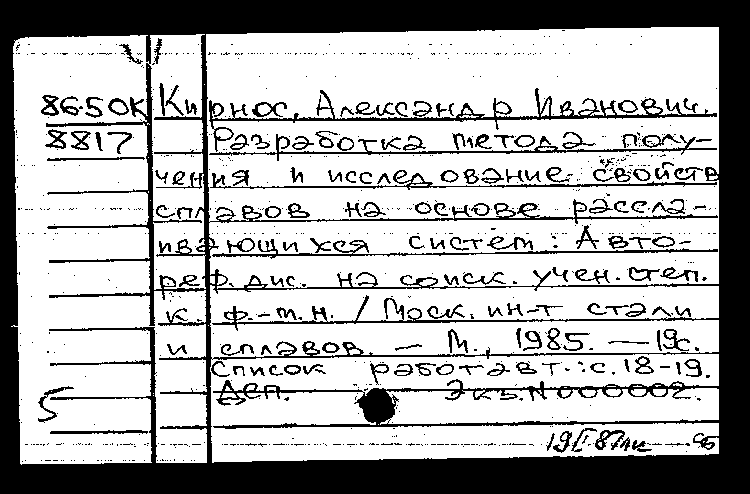 86-5 ОК Кирнос, Александр Иванович.
8817 Разработка метода полу-
чения и исследование свойств
сплавов на основе рассла-
ивающихся систем: Авто-
реф. дис. на соиск. учен. степ.
к. ф.-т. н. / Моск. ин-т стали
и сплавов. — М., 1985. — 19с.
Список работ авт.: с. 18-19.
Деп. Экз. N 000002.
5